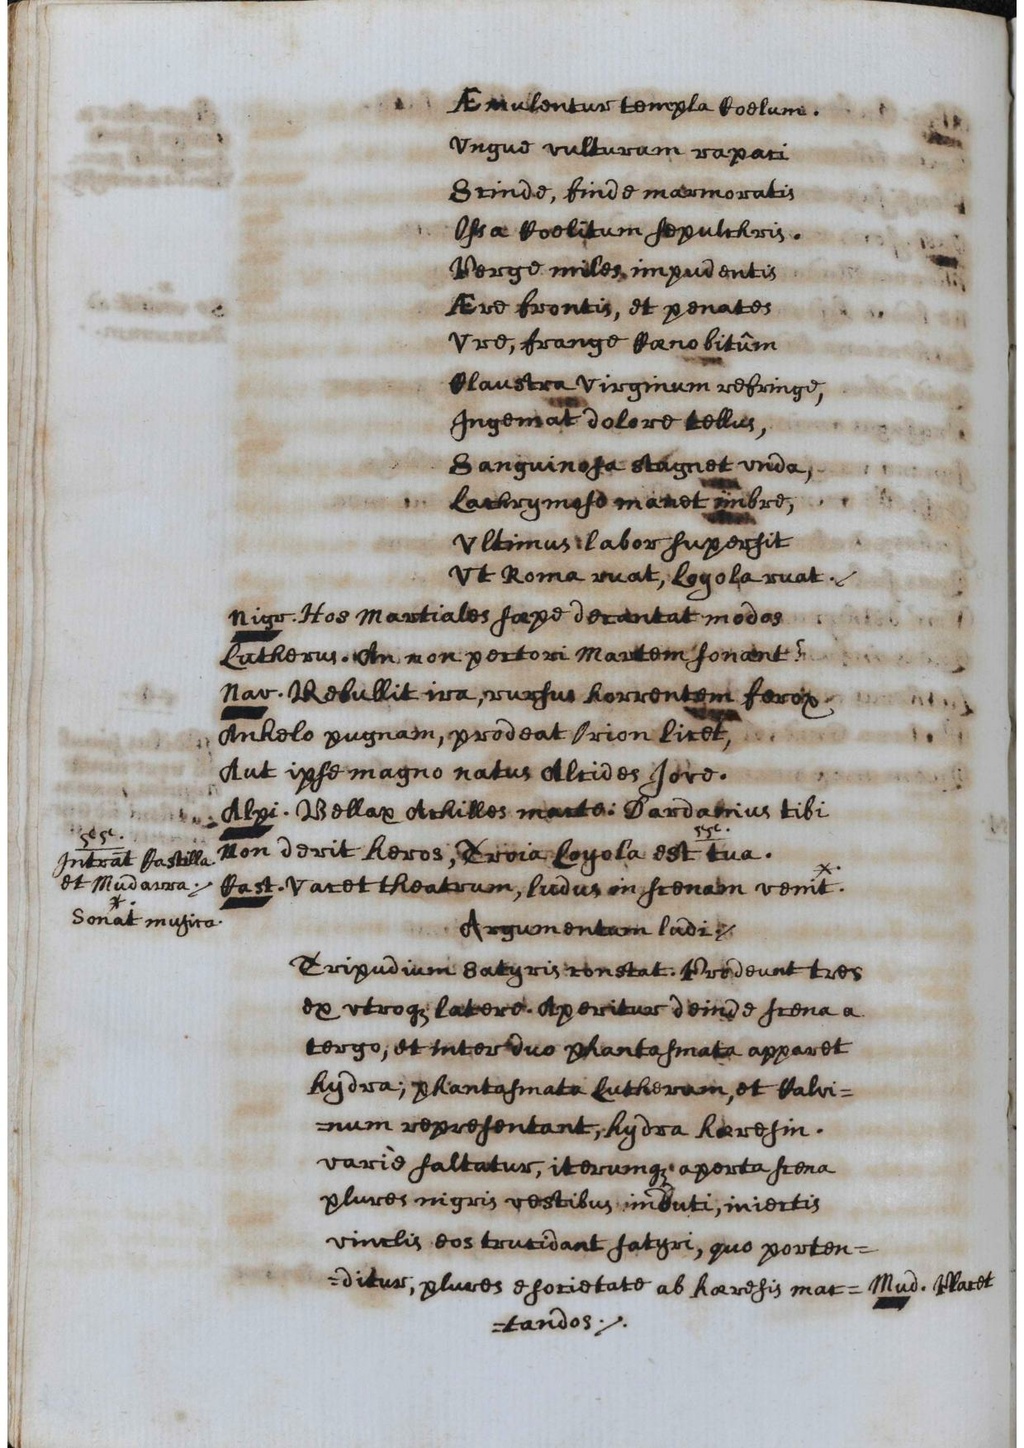 Æmulentur templa Coelum.
Vngue vulturam rapaci
Scinde, finde marmoratis
Ossa Coelitum sepulchris.
Perge miles, impudentis
Ære frontis, et penates
Vre, frange Cænobitûm
Claustra Virginum refringe,
Ingemat dolore tellus,
Sanguinosa stagnet vnda,
Lachrymoso manet imbre,
Vltimus labor supersit
Vt Roma ruat, Loyola ruat.
Nigr. Hos Martiales sæpe decantat modos
Lutherus. An non pectori Martem sonant?
Nav. Rebullit ira, rursus horrentem ferox
Anhelo pugnam, prodeat Orion licet,
Aut ipse magno natus Alcides Jove.
Alpi. Bellax Achilles macte: Dardanius tibi
Non derit heros, Troia Loyola est tua.
Cast. Vacet theatrum, ludus in scenam venit.
Intrãt Castilla
et Mudarra.
Sonat musica.
Argumentum ludi.
Tripudium Satyris constat. Prodeunt tres
ex vtroq; latere. Aperitur deinde scena a
tergo, et inter duo phantasmata apparet
hydra; phantasmata Lutherum, et Calvi=
=num repræsentant, hydra hæresin.
variè saltatur, iterumq; aperta scena
plures nigris vestibus induti, iniectis
vinclis eos trucidant satyri, quo porten=
=ditur, plures e societate ab hæresis mac=
=tandos.
Mud. Placet